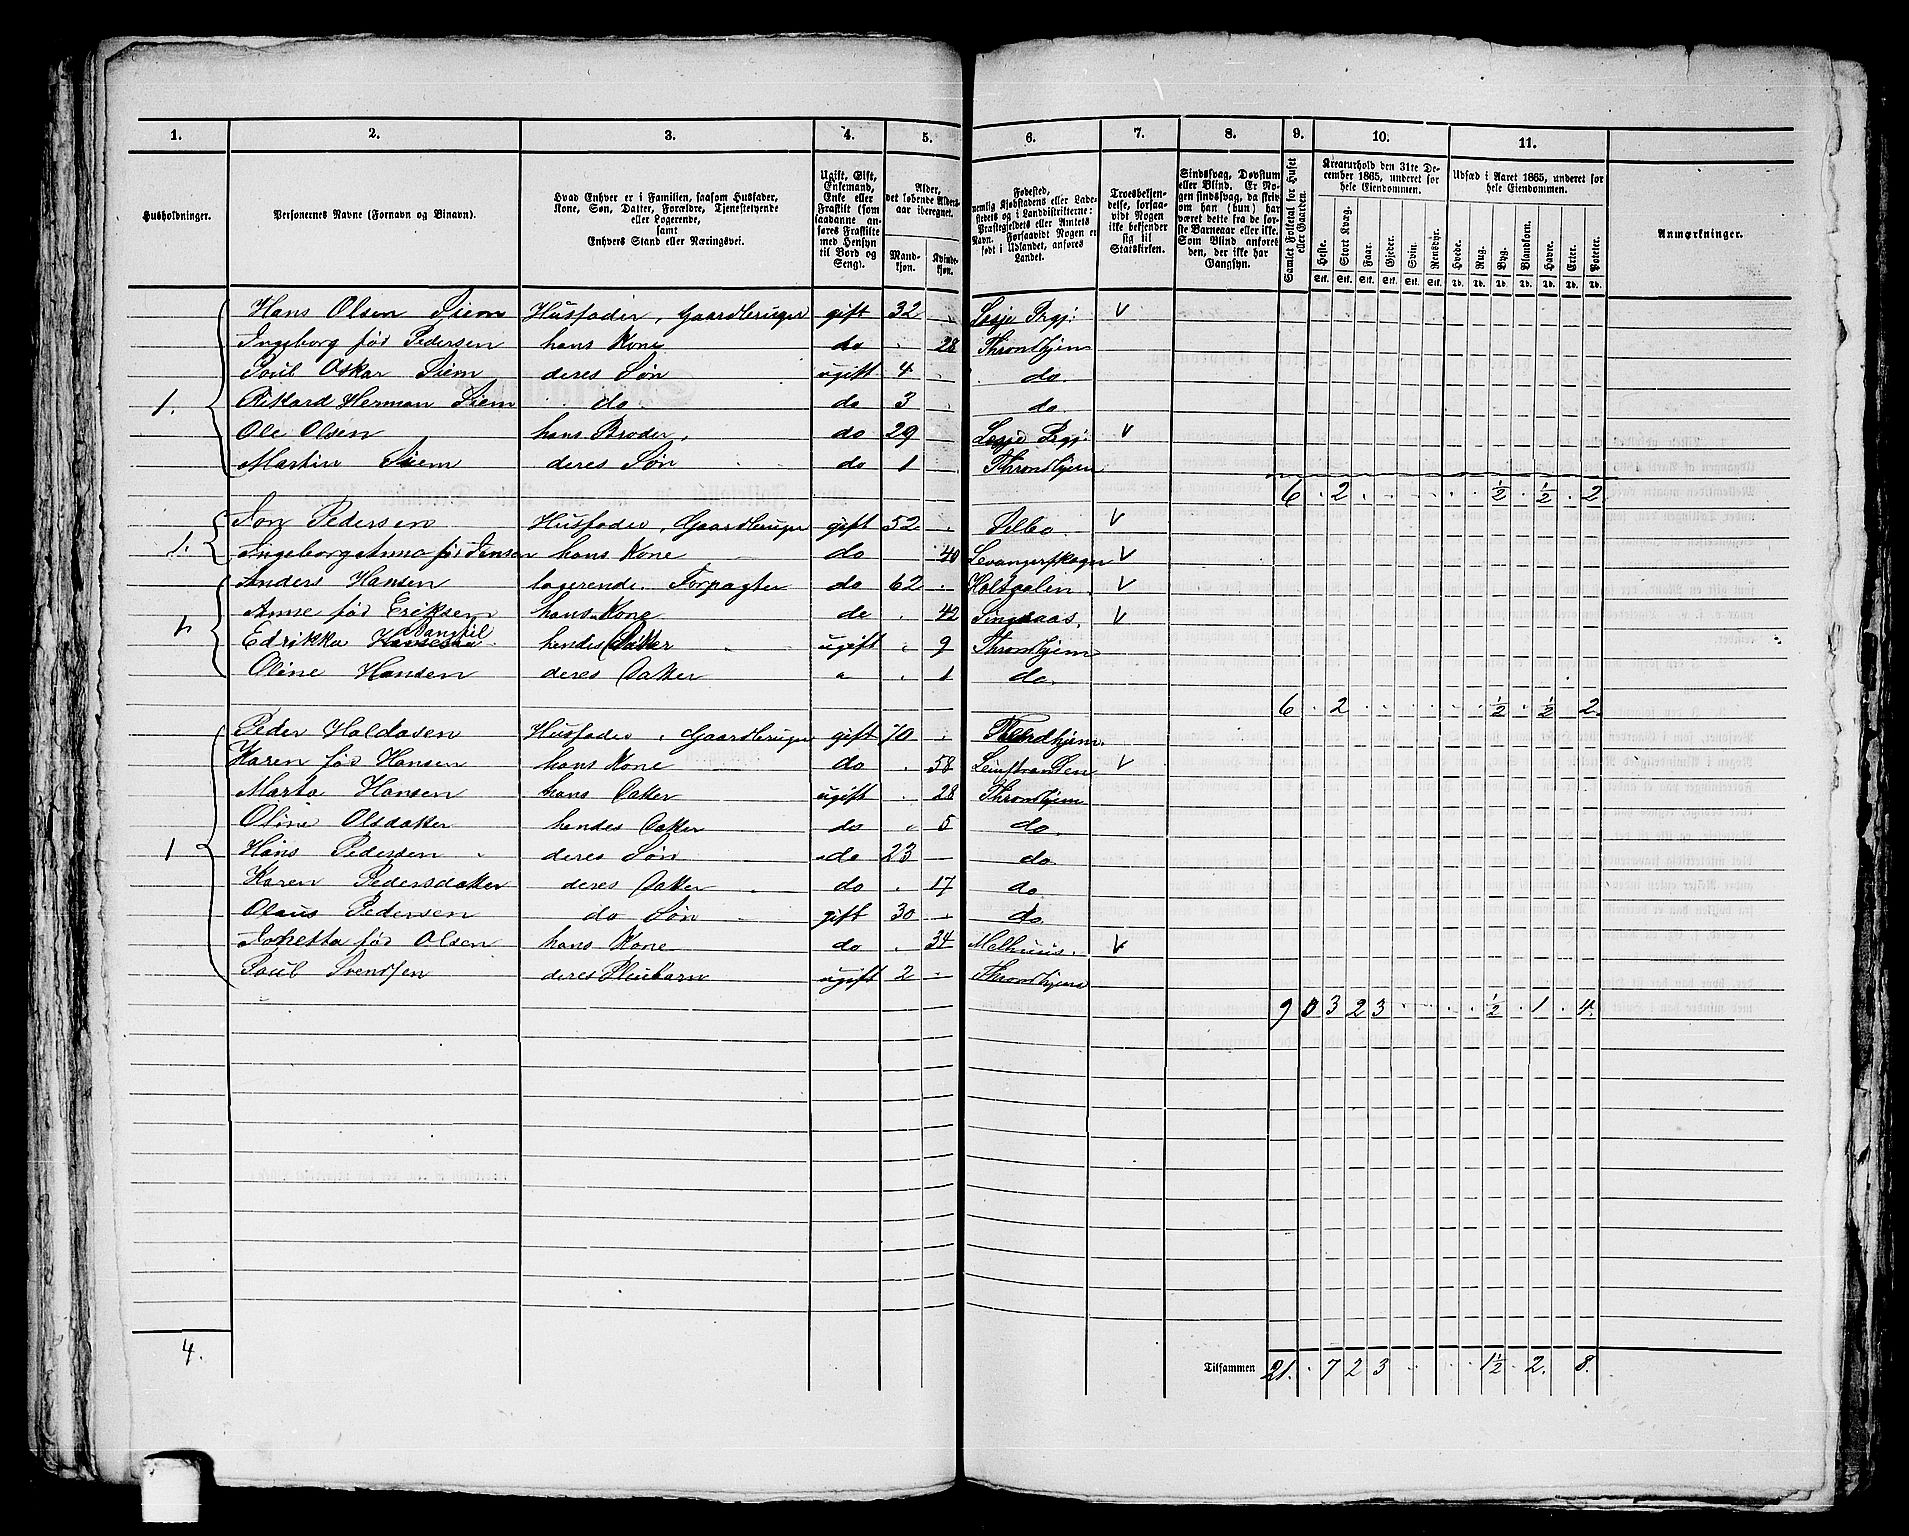 1. 2. 3. 4. 5. 6. 7. 8. 9. 10. 11.
Husholdninger.
Personernes Navne (Fornavn og Binavn).
Hvad Enhver er i Familien, saasom Husfader,
Kone, Søn, Datter, Forældre, Tjenestetyende
eller Logerende,
samt
Enhvers Stand eller Næringsvei.
Ugift, Gift,
Enkemand,
Enke eller
Fraskilt (som
saadanne an-
føres Fraskilte
med Hensyn
til Bord og
Seng).
Alder,
det løbende Alders-
aar iberegnet.
Mand-
kjøn.
Kvinde-
kjøn.
Fødested,
nemlig Kjøbstadens eller Lade-
stedets og i Landdistrikterne:
Præstegjeldets eller Amtets
Navn. Forsaavidt Nogen er
født i Udlandet, anføres
Landet.
Troesbekjen-
delse, forsaa-
vidt Nogen
ikke bekjender
sig til
Statskirken.
Sindssvag, Døvstum
eller Blind. Er No-
gen sindssvag, da skriv
om han (hun) har
været dette fra de før-
ste Barneaar eller ikke.
Som Blind anføres
den, der ikke har
Gangsyn.
Samlet Folketal for Huset
eller Gaarden.
Kreaturhold den 31te De-
cember 1865, underet for
hele Eiendommen.
Heste. Stort Kvæg. Faar. Gjeder. Svin. Rensdyr.
Stk. Stk. Stk. Stk. Stk. Stk.
Udsæd i Aaret 1865, underet for
hele Eiendommen.
Hvede. Rug. Byg. Blandkorn. Havre. Erter. Poteter.
Td. Td. Td. Td. Td. Td. Td.
Anmærkninger.
Hans Olsen Siem Husfader, Gaardbruger gift 32 Lesje Prgj: V
Ingeborg fød Pedersen hans Kone do 28 Throndhjem
Poul Oskar Siem deres Søn ugift 4 do.
1. Rikard Herman Siem do. do 3 do.
Ole Olsen hans Broder, do 29 Lesje Prgj: V
Martin Siem deres Søn do 1 Throndhjem
6 . 2 ½ . ½ . 2
Jon Pedersen Husfader, Gaardbruger gift 52 Selbo V
1. Ingeborg Anna fød Jensen hans Kone do 40 Levangerskogn V
Anders Hansen logerende. Forpagter do 62 Holtaalen V
Anne fød Eriksen hans Kone do 42 Singsaas. V
1. Edrikka hendes Datter ugift 9 Throndhjem
Oline Hansen deres Datter " 1 do.
6 . 2 ½ . ½ . 2.
Peder Haldosen Husfader, Gaardbruger gift 70 Throndhjem.
Karen fød Hansen hans Kone do 58 Leinstranden V
Marta Hansen hans Datter ugift 28 Throndhjem
Oline Olsdatter hendes Datter do " 5 do.
1 Hans Pedersen deres Søn do 23 do
Karen Pedersdatter deres Datter do 17 do
Olaus Pedersen do Søn gift 30 do.
fød Olsen hans Kone do 34 Melhuus. V
Poul Svendsen deres Pleiebarn ugift 2 Throndhjem
9 0 3 2 3 ½ . 1 . 4.
4.
Tilsammen 21. . 7 2 3 1½ . 2. 8.